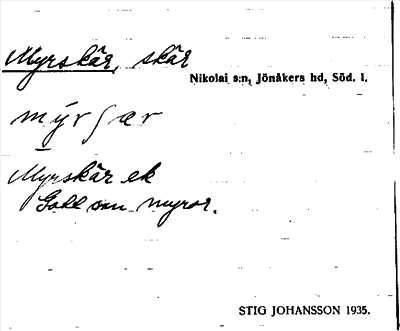 Myrskär, skär
Nikolai s:n, Jönåkers hd, Söd. l.
mýrʃær
Myrskär ek
Gott om myror.
STIG JOHANSSON 1935.